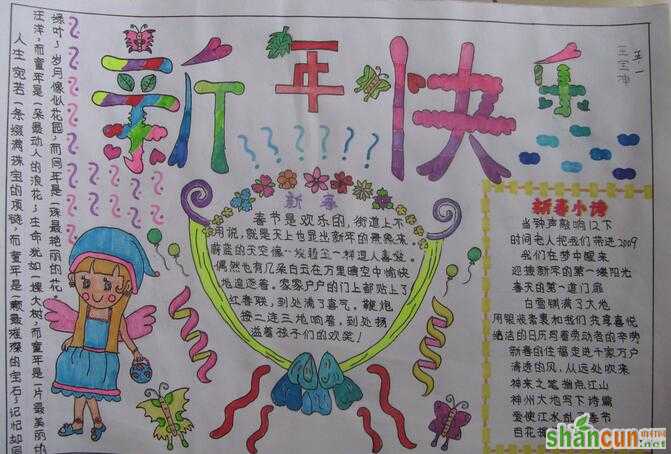 新年快乐
五·一
人生宛若一条缀满珠宝的项链,而童年是一颗最璀璨的宝石;记忆如同
汪洋,而童年是一朵最动人的浪花;生命犹如一棵大树,而童年是一片最美丽的
绿叶;岁月像似花园,而同年是一株最艳丽的花。
新春
春节是欢乐的,街道上不
用说,就是天上也显出新年的景象来。
蔚蓝的天空像一块 一样逗人喜爱。
偶然也有几朵白云在万里晴空中愉快
地追逐着。家家户户的门上都贴上了
红春联,到处满了喜气。鞭炮
接二连三地响着,到处扬
溢着孩子们的欢笑!
新春小诗
当钟声敲响12下
时间老人把我们带进2009
我们在梦中醒来
迎接新年的第一缕阳光
春天的第一道门扉
白雪铺满了大地
用银装素裹和我们共享喜悦
绪洁的日历写着劳动者的辛劳
新春的住福走进千家万户
清透的风,从远处吹来
神来之笔 点江山
神州大地写下诗篇
爱使江水乱 春节
百花
shancun